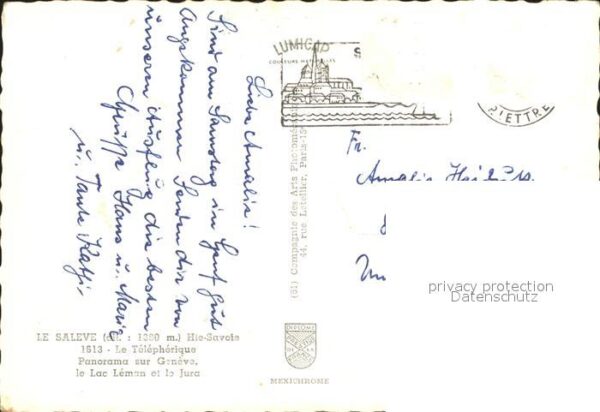 Liebe Amalia!
Sind am Samstag in Genf gut
Angekommen Senden dir von
unserm Ausflug die besten
Grüsse Hans u. Marie
u. Tante Kathi.
LE SALEVE (alt. : 1380 m.) Hte-Savoie
1613 - Le Téléphérique
Panorama sur Genève,
le Lac Léman et le Jura
LUMICAP
COULEURS NATURELLES
(61) Compagnie des Arts Photomécaniques
44, rue Letellier, Paris-15
DIPLOME
MEXICHROME
Fr.
Amalia
privacy protection
Datenschutz